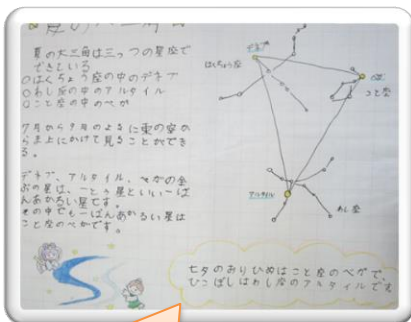 夏の大三角
夏の大三角は三つの星座で
できている
○はくちょう座の中のデネブ
○わし座の中のアルタイル
○こと座の中のベガ
7月から9月のよるに東の空か
ら真上にかけて見ることができ
る。
デネブ、アルタイル、ベガの全
ぶの星は、一とう星といい一ば
んあかるい星です。
その中でも一ばんあかるい星は
こと座のベガです。
デネブ
はくちょう座
ベガ
こと座
アルタイル
わし座
七夕のおりひめはこと座のベガで、
ひこぼしはわし座のアルタイルです